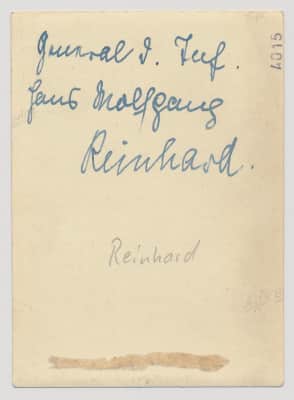 General d. Inf.
Hans Wolfgang
Reinhard.
Reinhard
4015